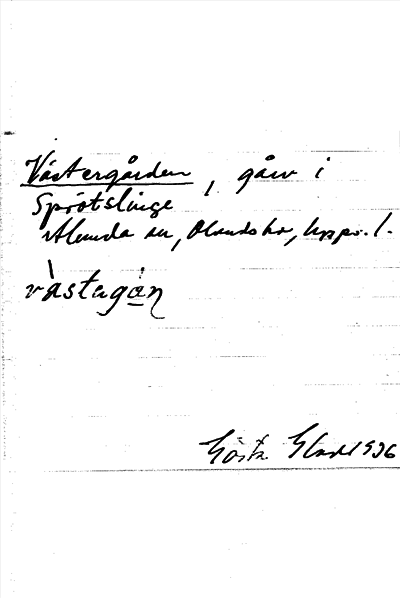 Västergården, gård i
Sprötslinge
Alunda sn, Olands hd, Upps. l.
västegån
Gösta Eland 1936